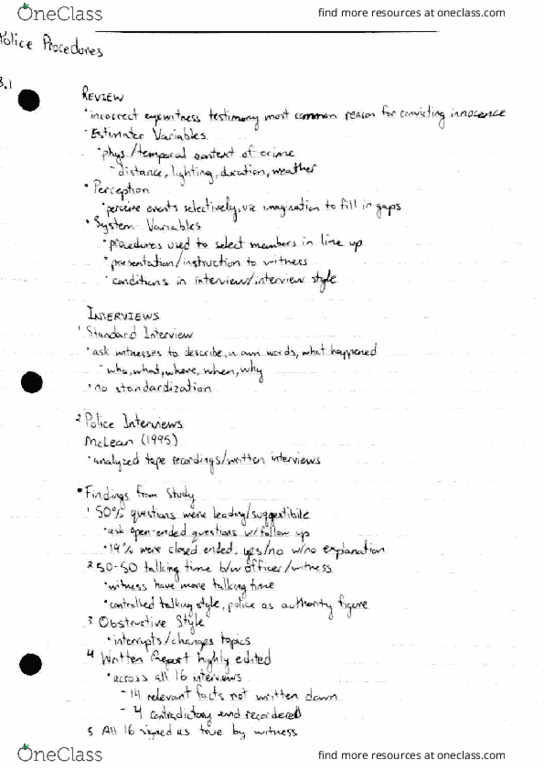 OneClass
find more resources at oneclass.com
Police Procedures
3.1
REVIEW
• incorrect eyewitness testimony most common reason for convicting innocence
• Estimater Variables
• phys/temporal context of crime
- distance, lighting, duration, weather
• Perception
• perceive events selectively, use imagination to fill in gaps
• System Variables
• procedures used to select members in line up
• presentation/instruction to witness
• conditions in interview/interview style
INTERVIEWS
1 Standard Interview
• ask witnesses to describe, in own words, what happened
- who, what, where, when, why
• no standardization
2 Police Interviews
McLean (1995)
• analyzed tape recordings/written interviews
• Findings from Study
1 50% questions were leading/suggestibile
• ask open-ended questions w/ follow up
• 19% were closed ended, yes/no w/no explanation
2 50-50 talking time b/w officer/witness
• witness have more talking time
• controlled talking style, police as authority figure
3 Obstructive Style
• interrupts/changes topics
4 Written Report highly edited
• across all 16 interviews
- 14 relevant facts not written down
- 4 contradictory and recorded
5 All 16 signed as true by witness
OneClass
find more resources at oneclass.com